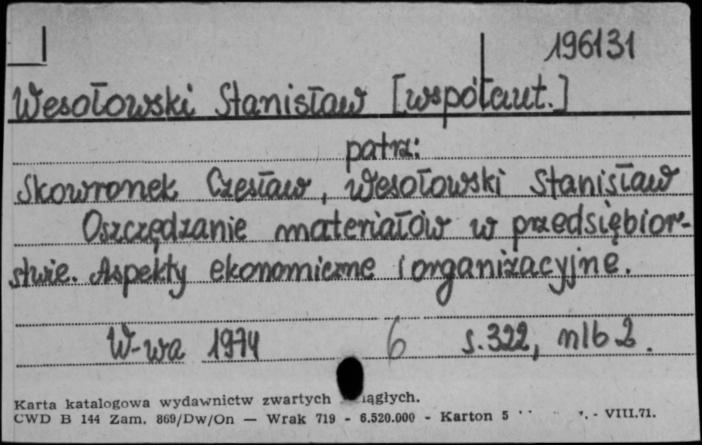 196131
Wesołowski Stanisław [współaut.]
patrz:
Skowronek Czesław, Wesołowski Stanisław
Oszczędzanie materiałów w przedsiębior-
stwie. Aspekty ekonomiczne i organizacyjne.
W-wa 1974 6 s. 322, nlb 2.
Karta katalogowa wydawnictw zwartych
CWD B 144 Zam. 869/Dw/On — Wrak 719 - 6.520.000 - Karton 5 - VIII.71.